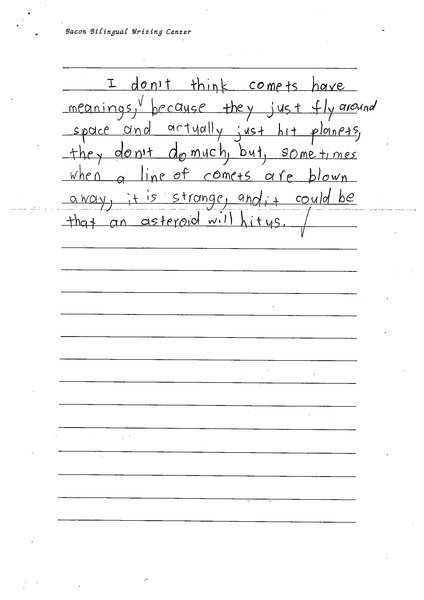 Bacon Bilingual Writing Center
I don't think comets have
meanings, because they just fly around
space and actually just hit planets,
they don't do much, but, sometimes
when a line of comets are blown
away, it is strange, and it could be
that an asteroid will hit us.